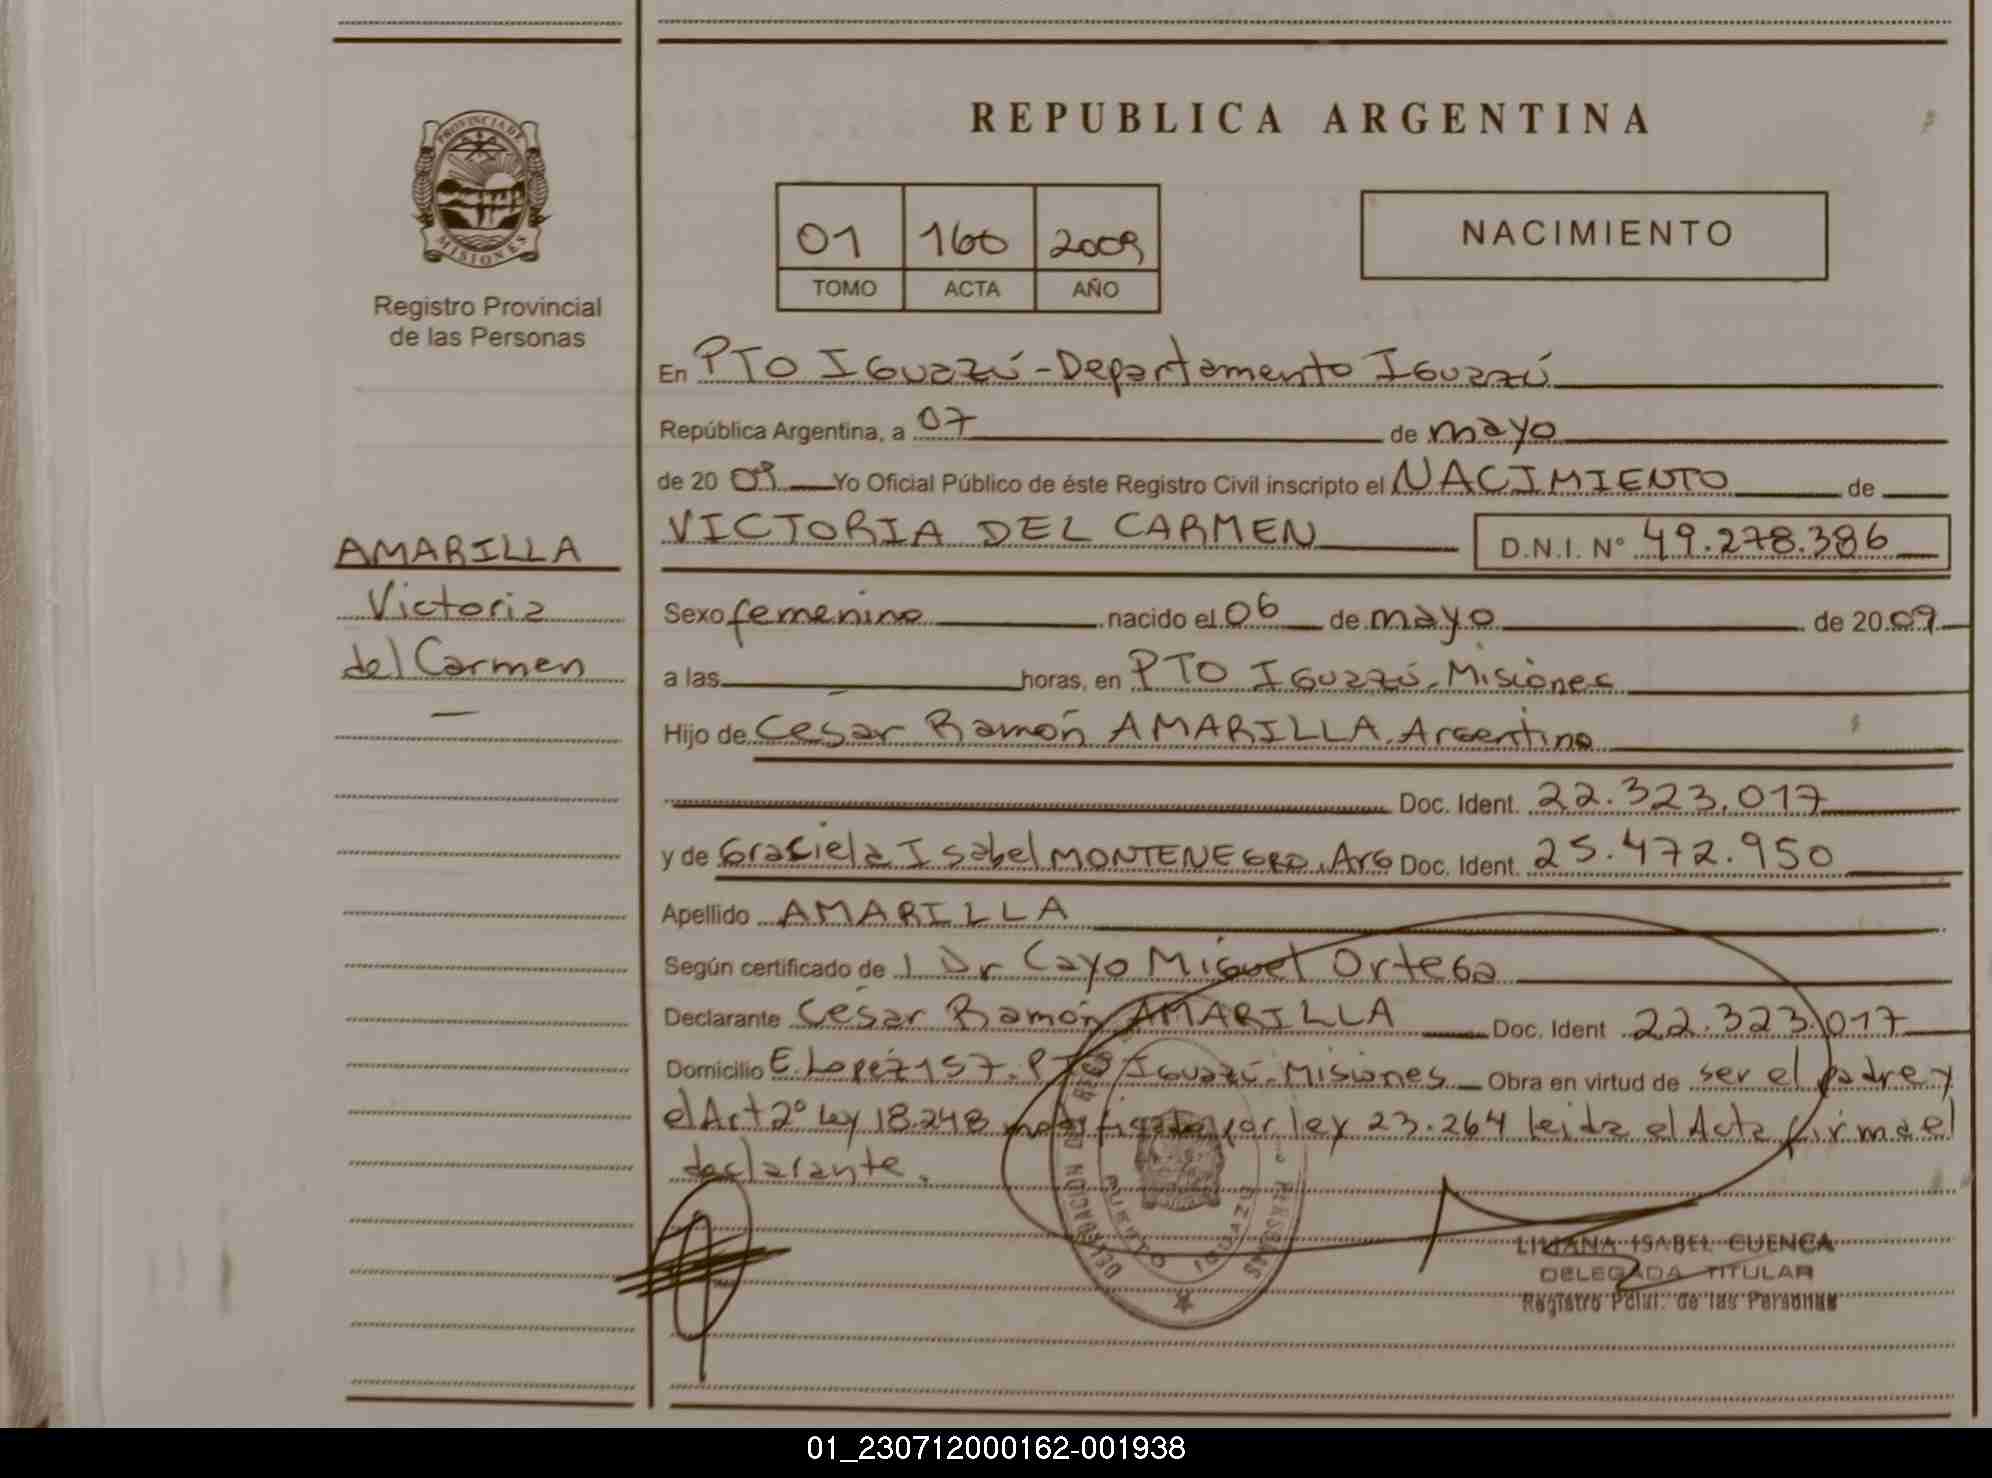 REPUBLICA ARGENTINA
PROVINCIA DE
MISIONES
Registro Provincial
de las Personas
01 160 2009
TOMO ACTA AÑO
NACIMIENTO
En PTO IGUAZÚ - Departamento IGUAZÚ
República Argentina, a 07 de mayo
de 20 09 Yo Oficial Público de éste Registro Civil inscripto el NACIMIENTO de
VICTORIA DEL CARMEN D.N.I. N° 49.278.386
AMARILLA
Victoria
del Carmen
Sexo femenino nacido el 06 de mayo de 2009
a las horas, en PTO IGUAZÚ. Misiones
Hijo de César Ramón AMARILLA. Argentino
Doc. Ident. 22.323.017
y de Graciela Isabel MONTENEGRO. Arg Doc. Ident. 25.472.950
Apellido AMARILLA
Según certificado de Dr Cayo Miguel Ortega
Declarante César Ramón AMARILLA Doc. Ident 22.323.017
Domicilio E. López 157. PTO IGUAZÚ. Misiones Obra en virtud de ser el padre y
el Art 2° Ley 18.248 modificado por ley 23.264 leida el Acta firma el
declarante.
DELEGACION
PERSONAS
PUERTO IGUAZU
LILIANA ISABEL CUENCA
DELEGADA TITULAR
Registro Pcial. de las Personas
01_230712000162-001938